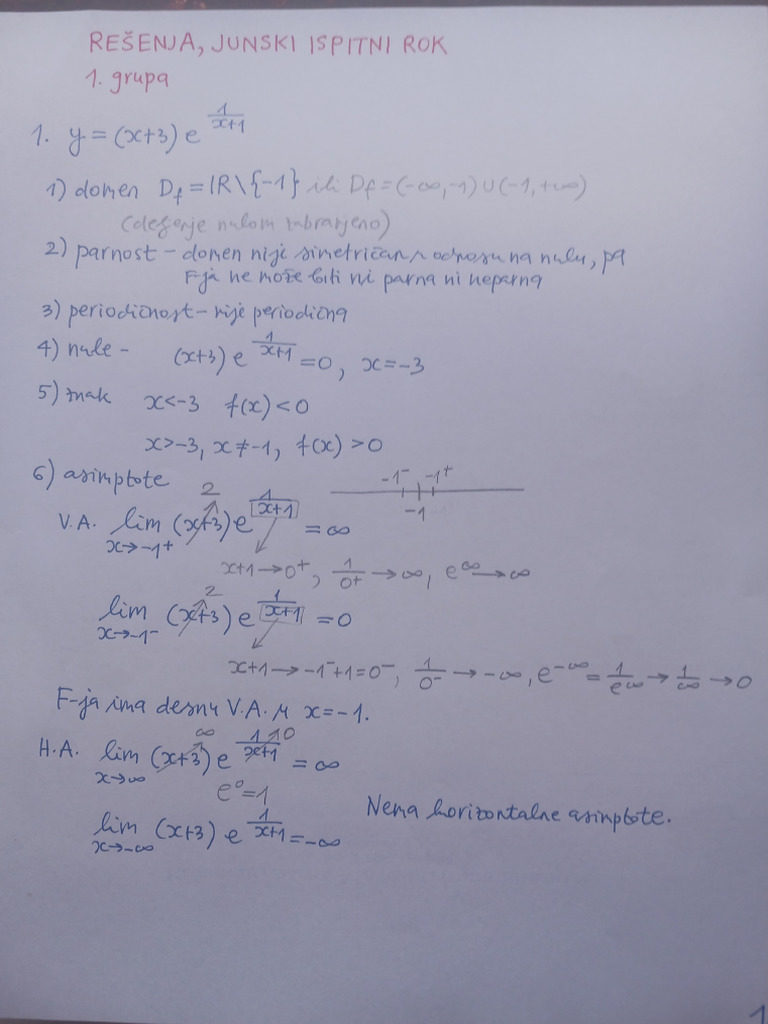 REŠENJA, JUNSKI ISPITNI ROK
1. grupa
1. y = (x+3) e^{\frac{1}{x+1}}
1) domen D_f = IR\{-1} ili D_f = (-∞,-1) ∪ (-1,+∞)
(deljenje nulom zabranjeno)
2) parnost - domen nije simetričan u odnosu na nulu, pa
F-ja ne može biti ni parna ni neparna
3) periodičnost - nije periodična
4) nule - (x+3) e^{\frac{1}{x+1}} = 0, x = -3
5) znak x<-3 f(x) < 0
x>-3, x ≠ -1, f(x) > 0
6) asimptote
-1^- -1^+
-1
V.A. lim_{x→-1^+} (x+3)^{↗2} e^{\frac{1}{x+1}} = ∞
x+1 → 0^+, \frac{1}{0^+} → ∞, e^∞ → ∞
lim_{x→-1^-} (x+3)^{↗2} e^{\frac{1}{x+1}} = 0
x+1 → -1^-+1 = 0^-, \frac{1}{0^-} → -∞, e^{-∞} = \frac{1}{e^∞} → \frac{1}{∞} → 0
F-ja ima desnu V.A. u x = -1.
H.A. lim_{x→∞} (x+3)^{↗∞} e^{\frac{1}{x+1}↗0} = ∞
e^0 = 1
lim_{x→-∞} (x+3) e^{\frac{1}{x+1}} = -∞
Nema horizontalne asimptote.
1